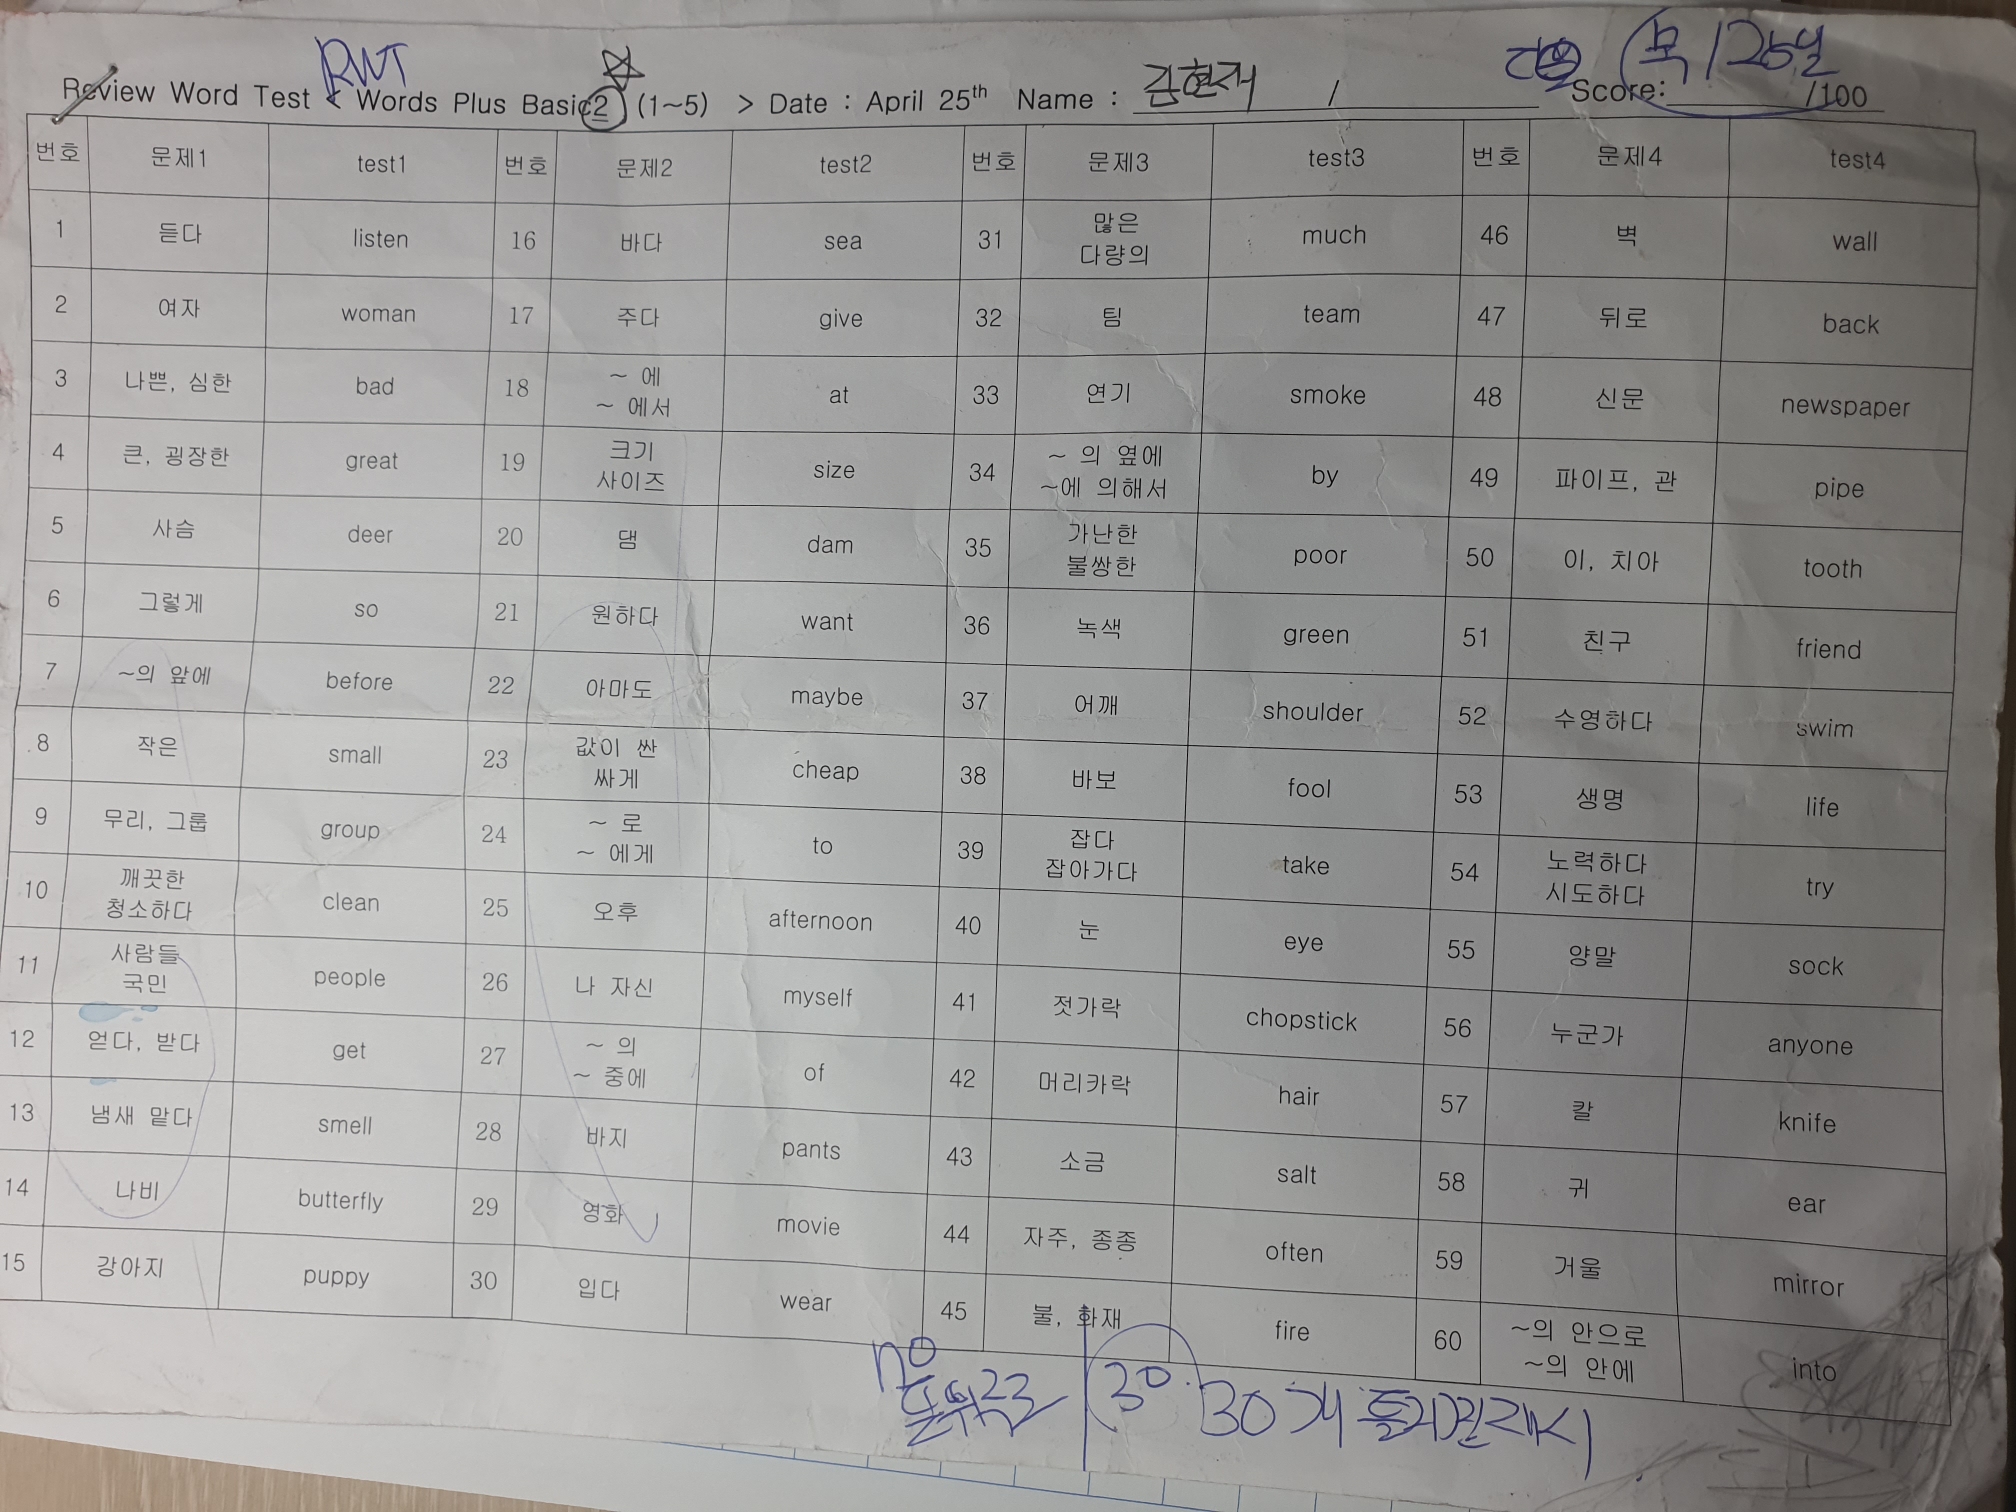 RWT
다음 목/25일
Review Word Test < Words Plus Basic2 (1~5) > Date : April 25th Name : 김현재 / Score: /100
번호 문제1 test1 번호 문제2 test2 번호 문제3 test3 번호 문제4 test4
1 듣다 listen 16 바다 sea 31 많은 다량의 much 46 벽 wall
2 여자 woman 17 주다 give 32 팀 team 47 뒤로 back
3 나쁜, 심한 bad 18 ~ 에 ~ 에서 at 33 연기 smoke 48 신문 newspaper
4 큰, 굉장한 great 19 크기 사이즈 size 34 ~ 의 옆에 ~에 의해서 by 49 파이프, 관 pipe
5 사슴 deer 20 댐 dam 35 가난한 불쌍한 poor 50 이, 치아 tooth
6 그렇게 so 21 원하다 want 36 녹색 green 51 친구 friend
7 ~의 앞에 before 22 아마도 maybe 37 어깨 shoulder 52 수영하다 swim
8 작은 small 23 값이 싼 싸게 cheap 38 바보 fool 53 생명 life
9 무리, 그룹 group 24 ~ 로 ~ 에게 to 39 잡다 잡아가다 take 54 노력하다 시도하다 try
10 깨끗한 청소하다 clean 25 오후 afternoon 40 눈 eye 55 양말 sock
11 사람들 국민 people 26 나 자신 myself 41 젓가락 chopstick 56 누군가 anyone
12 얻다, 받다 get 27 ~ 의 ~ 중에 of 42 머리카락 hair 57 칼 knife
13 냄새 맡다 smell 28 바지 pants 43 소금 salt 58 귀 ear
14 나비 butterfly 29 영화 movie 44 자주, 종종 often 59 거울 mirror
15 강아지 puppy 30 입다 wear 45 불, 화재 fire 60 ~의 안으로 ~의 안에 into
no
30 30개 틀리면 재시